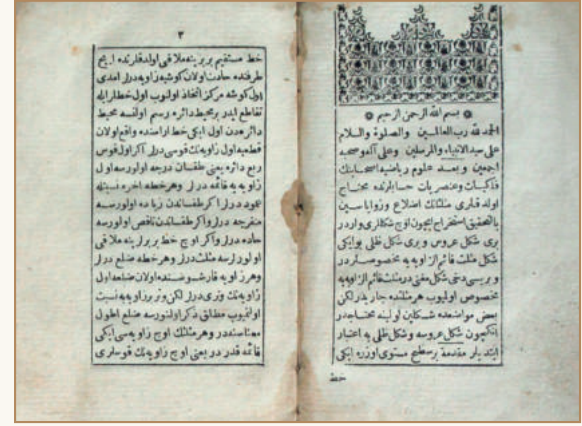 بسم الله الرحمن الرحيم
الحمد لله رب العالمين والصلوة والسلام
على سيد الانبياء والمرسلين وعلى آله وصحبه
اجمعين وبعد علوم رياضيه اصحابنك
فلكيات وعنصريات حسابلرنده محتاج
اولدقلرى مثلثك اضلاع وزواياسين
بالتحقيق استخراج ايچون اوچ شكللرى واردر
برى شكل عروس وبرى شكل ظلى بو ايكى
شكل مثلث قائم الزاويه يه مخصوصلردر
وبريسى دخى شكل مغنى در مثلث قائم الزاويه يه
مخصوص اوليوب هر مثلثده جاريدر لكن
بعض مواضعده شكلين اولينه محتاجدر
انكچون شكل عروسه وشكل ظلى يه اعتبار
ابتدا يلر مقدمة بر سطح مستوى اوزره ايكى
خط
٣
خط مستقيم بربرينه ملاقى اولدقلرنده ايكى
طرفنده حادث اولان كوشه يه زاويه ديرلر امدى
اول كوشه مركز اتخاذ اولنوب اول خطلر ايله
تقاطع ايدر بر محيط دائره رسم اولنسه محيط
دائره دن اول ايكى خط اراسنده واقع اولان
قطعه يه اول زاويه نك قوسى ديرلر اكر اول قوس
ربع دائره يعنى طقسان درجه اولورسه اول
زاويه يه قائمه ديرلر وهر خطه اخره نسبتله
عمود ديرلر اكر طقساندن زياده اولورسه
منفرجه ديرلر واكر طقساندن ناقص اولورسه
حاده ديرلر واكر اوچ خط بربرلرينه ملاقى
اولورلرسه مثلث ديرلر وهر خطه ضلع ديرلر
وهر زاويه قارشوسنده اولان ضلعه اول
زاويه نك وترى ديرلر لكن وتر بر زاويه يه نسبت
اولنميوب مطلق ذكر اولنورسه ضلع اطول
معناسنه در وهر مثلثك اوچ زاويه سى ايكى
قائمه قدردر يعنى اوچ زاويه نك قوسلرى